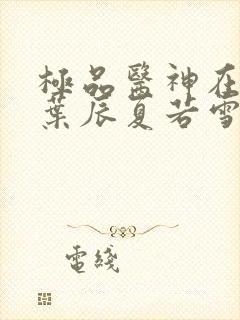 極品醫神在
葉辰夏若雪
電綫